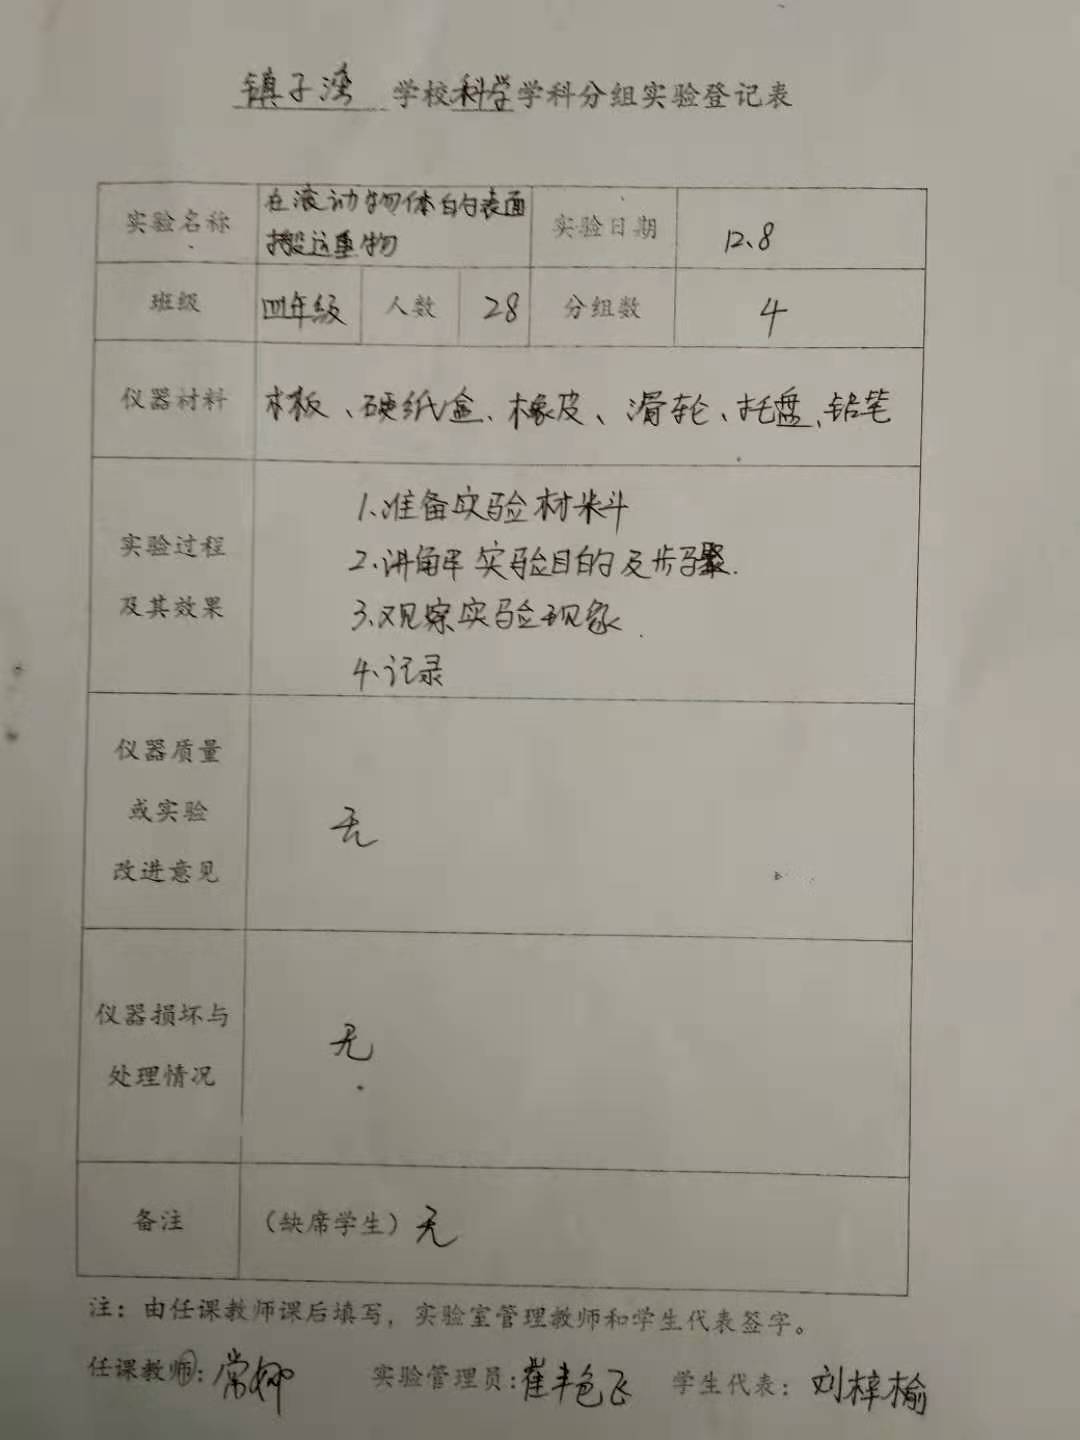 镇子湾 学校科学学科分组实验登记表
实验名称 在滚动物体的表面搬运重物 实验日期 12.8
班级 四年级 人数 28 分组数 4
仪器材料 木板、硬纸盒、橡皮、滑轮、托盘、铅笔
实验过程及其效果
1.准备实验材料
2.讲解实验目的及步骤.
3.观察实验现象.
4.记录
仪器质量或实验改进意见 无
仪器损坏与处理情况 无
备注 (缺席学生) 无
注：由任课教师课后填写，实验室管理教师和学生代表签字。
任课教师: 常柳 实验管理员: 学生代表: 刘梓榆